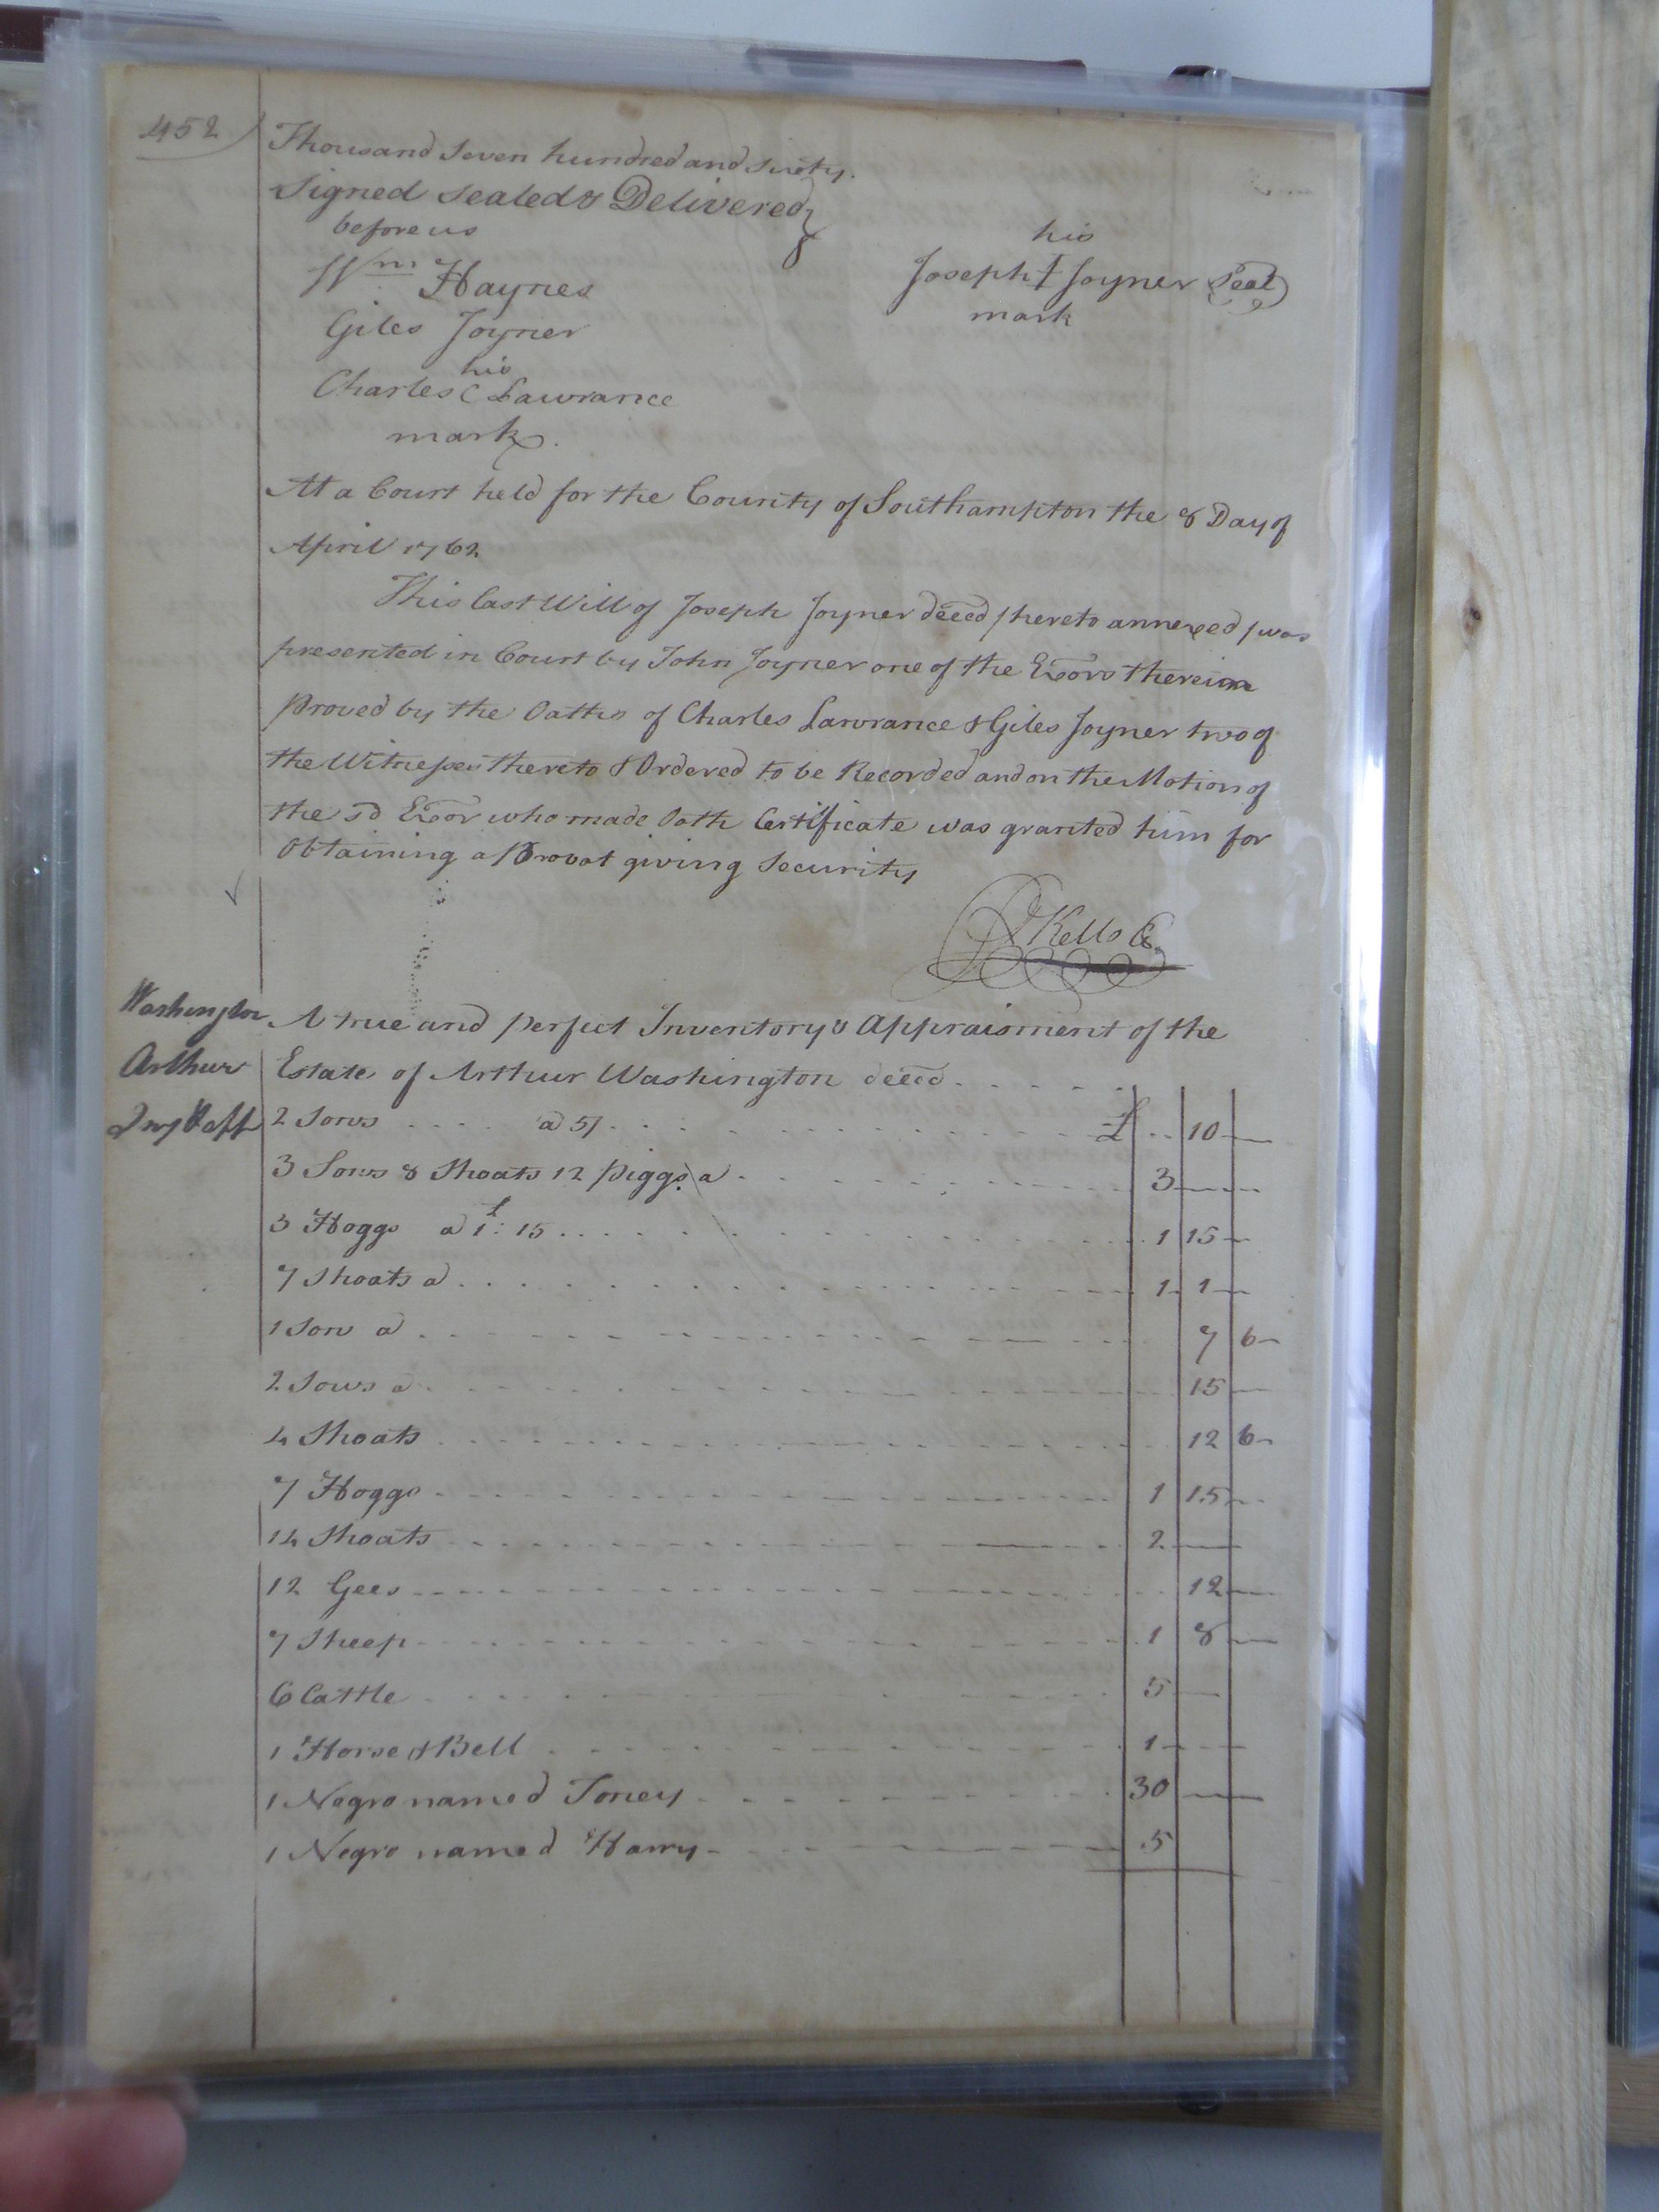 452
Thousand Seven hundred and Sixty.
Signed Sealed & Delivered
before us
his
Wm Haynes
Joseph Joyner Seal
mark
Giles Joyner
his
Charles C Lawrance
mark
At a Court held for the County of Southampton the 8 Day of
April 1762
This last Will of Joseph Joyner deced /hereto annexed/ was
presented in Court by John Joyner one of the Exors therein
Proved by the Oaths of Charles Lawrance & Giles Joyner two of
the Witnesses thereto & Ordered to be Recorded and on the Motion of
the sd Exor who made Oath Certificate was granted him for
Obtaining a Probat giving Security
R Kello C.
Washington A true and perfect Inventory & Appraisment of the
Arthur Estate of Arthur Washington deced
2 Sows a 5/ £ 10
3 Sows 8 Shoats 12 Piggs a 3
3 Hoggs a £1:15 1 15
7 Shoats a 1 1
1 Sow a 7 6
2 Sows a 15
4 Shoats 12 6
7 Hoggs 1 15
14 Shoats 2
12 Gees 12
7 Sheep 1 8
6 Cattle 5
1 Horse & Bell 1
1 Negro named Toney 30
1 Negro named Harry 5